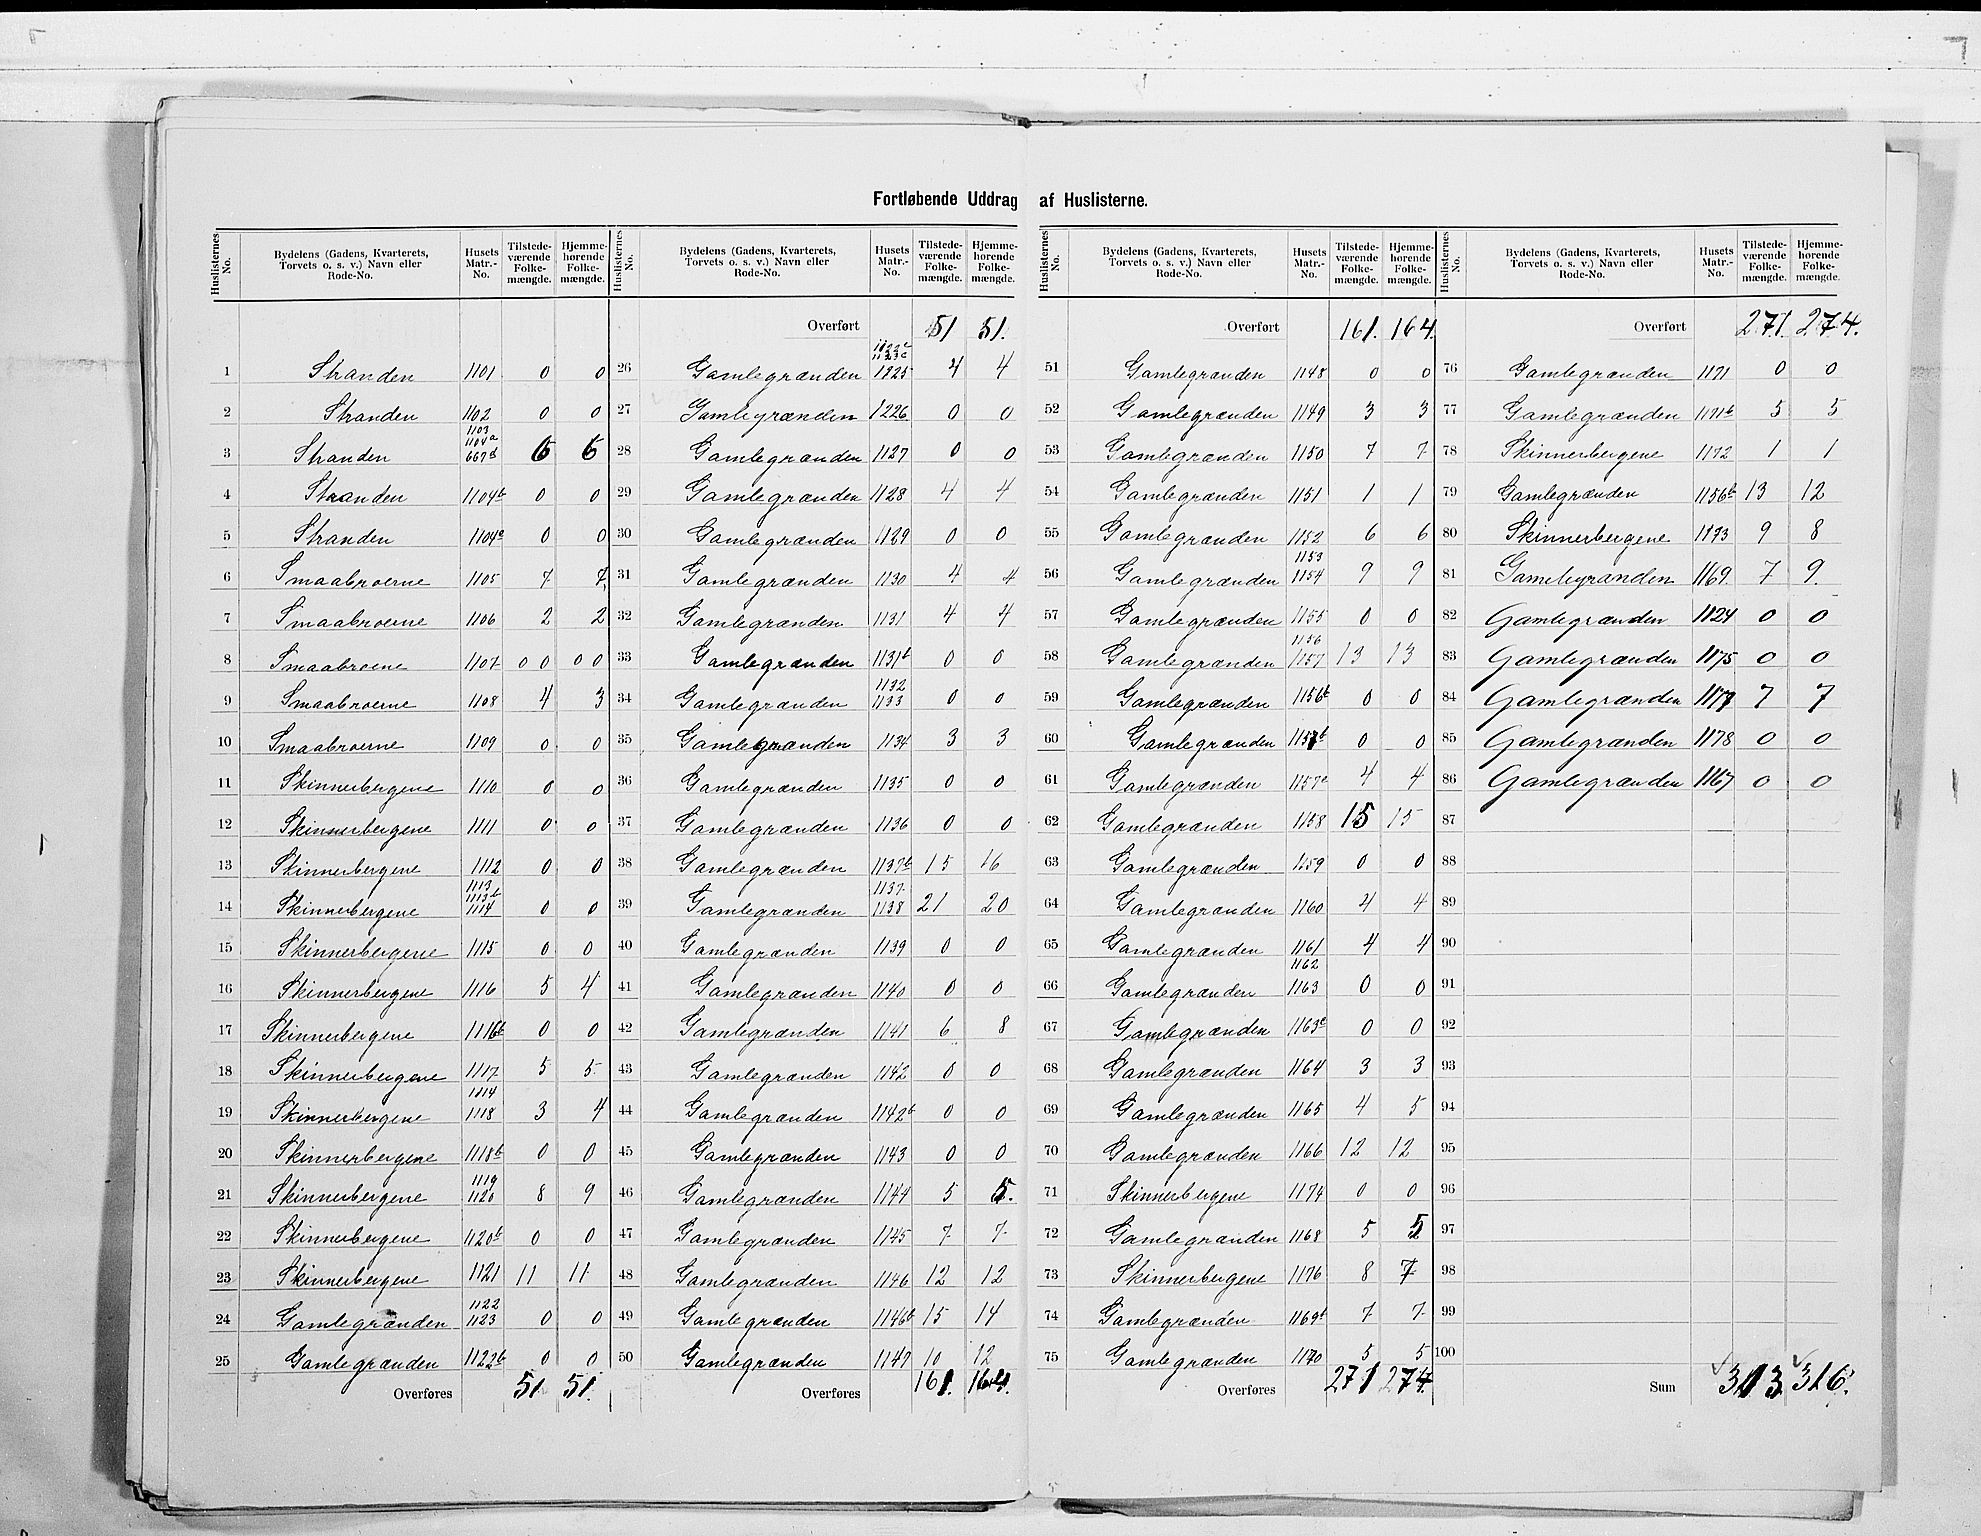 Fortløbende Uddrag af Huslisterne.
Huslisternes No. | Bydelens (Gadens, Kvarterets, Torvets o. s. v.) Navn eller Rode-No. | Husets Matr.-No. | Tilstede-værende Folke-mængde. | Hjemme-hørende Folke-mængde.
1 Stranden 1101 0 0
2 Stranden 1102 0 0
3 Stranden 1103 1104a 667d 6 6
4 Stranden 1104b 0 0
5 Stranden 1104c 0 0
6 Smaabroerne 1105 7 7
7 Smaabroerne 1106 2 2
8 Smaabroene 1107 0 0 0 0
9 Smaabroerne 1108 4 3
10 Smaabroerne 1109 0 0
11 Skinnerbergene 1110 0 0
12 Skinnerbergene 1111 0 0
13 Skinnerbergene 1112 0 0
14 Skinnerbergene 1113 1113b 1114 0 0
15 Skinnerbergene 1115 0 0
16 Skinnerbergene 1116 5 4
17 Skinnerbergene 1116b 0 0
18 Skinnerbergene 1117 5 5
19 Skinnerbergene 1114 1118 3 4
20 Skinnerbergene 1118b 0 0
21 Skinnerbergene 1119 1120 8 9
22 Skinnerbergene 1120b 0 0
23 Skinnerbergene 1121 11 11
24 Gamlegrænden 1122 1123 0 0
25 Gamlegrænden 1122b 0 0
Overføres 51 51.
Huslisternes No. | Bydelens (Gadens, Kvarterets, Torvets o. s. v.) Navn eller Rode-No. | Husets Matr.-No. | Tilstede-værende Folke-mængde. | Hjemme-hørende Folke-mængde.
Overført 51 51.
26 Gamlegrænden 1122c 1123c 1125 4 4
27 Gamlegrænden 1226 0 0
28 Gamlegrænden 1127 0 0
29 Gamlegrænden 1128 4 4
30 Gamlegrænden 1129 0 0
31 Gamlegrænden 1130 4 4
32 Gamlegrænden 1131 4 4
33 Gamlegrænden 1131b 0 0
34 Gamlegrænden 1132 1133 0 0
35 Gamlegrænden 1134 3 3
36 Gamlegrænden 1135 0 0
37 Gamlegrænden 1136 0 0
38 Gamlegrænden 1137b 15 16
39 Gamlegrænden 1137 1138 21 20
40 Gamlegrænden 1139 0 0
41 Gamlegrænden 1140 0 0
42 Gamlegrænden 1141 6 8
43 Gamlegrænden 1142 0 0
44 Gamlegrænden 1142b 0 0
45 Gamlegrænden 1143 0 0
46 Gamlegrænden 1144 5 5.
47 Gamlegrænden 1145 7 7
48 Gamlegrænden 1146 12 12
49 Gamlegrænden 1146b 15 14
50 Gamlegrænden 1147 10 12
Overføres 161. 164.
Huslisternes No. | Bydelens (Gadens, Kvarterets, Torvets o. s. v.) Navn eller Rode-No. | Husets Matr.-No. | Tilstede-værende Folke-mængde. | Hjemme-hørende Folke-mængde.
Overført 161. 164.
51 Gamlegrænden 1148 0 0
52 Gamlegrænden 1149 3 3
53 Gamlegrænden 1150 7 7
54 Gamlegrænden 1151 1 1
55 Gamlegrænden 1152 6 6
56 Gamlegrænden 1153 1154 9 9
57 Gamlegrænden 1155 0 0
58 Gamlegrænden 1156 1157 13 13
59 Gamlegrænden 1156b 0 0
60 Gamlegrænden 1157b 0 0
61 Gamlegrænden 1157c 4 4
62 Gamlegrænden 1158 15 15
63 Gamlegrænden 1159 0 0
64 Gamlegrænden 1160 4 4
65 Gamlegrænden 1161 4 4
66 Gamlegrænden 1162 1163 0 0
67 Gamlegrænden 1163c 0 0
68 Gamlegrænden 1164 3 3
69 Gamlegrænden 1165 4 5
70 Gamlegrænden 1166 12 12
71 Skinnerbergene 1174 0 0
72 Gamlegrænden 1168 5 5
73 Skinnerbergene 1176 8 7
74 Gamlegrænden 1169b 7 7
75 Gamlegrænden 1170 5 5
Overføres 271 274.
Huslisternes No. | Bydelens (Gadens, Kvarterets, Torvets o. s. v.) Navn eller Rode-No. | Husets Matr.-No. | Tilstede-værende Folke-mængde. | Hjemme-hørende Folke-mængde.
Overført 271. 274.
76 Gamlegrænden 1171 0 0
77 Gamlegrænden 1171b 5 5
78 Skinnerbergene 1172 1 1
79 Gamlegrænden 1156b 13 12
80 Skinnerbergene 1173 9 8
81 Gamlegrænden 1169. 7 9.
82 Gamlegrænden 1124 0 0
83 Gamlegrænden 1175 0 0
84 Gamlegrænden 1177 7 7
85 Gamlegrænden 1178 0 0
86 Gamlegrænden 1167 0 0
87
88
89
90
91
92
93
94
95
96
97
98
99
100
Sum 313. 316.